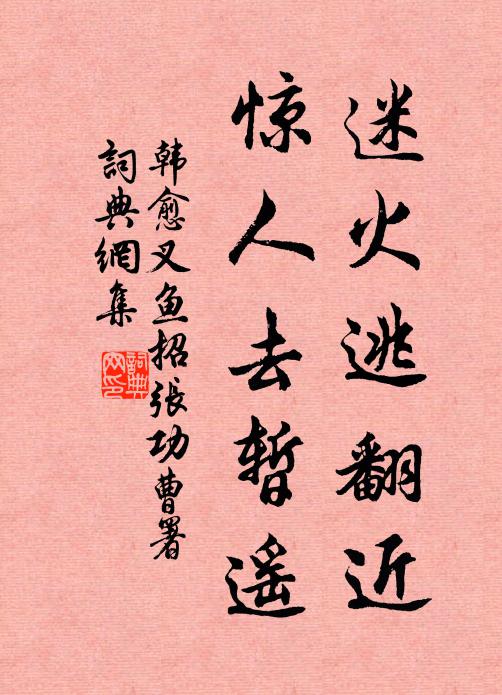 迷火逃翻近
惊人去暂遥
韩愈叉鱼招張功曹署
詞典網集
詞典网印